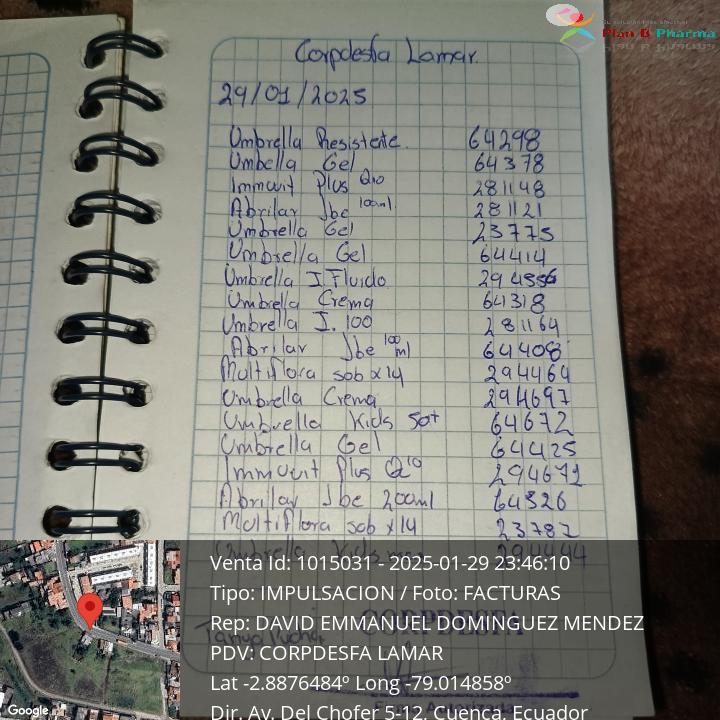 Plan B Pharma
Corpdesfa Lamar.
29/01/2025
Umbrella Resistente. 64298
Umbella Gel 64378
Immuvit Plus Q10 281148
Abrilar Jbe 100ml. 281121
Umbrella Gel 23775
Umbrella Gel 64414
Umbrella I. Fluido
Umbrella Crema 64318
Umbrella I. 100 281164
Abrilar Jbe 100 ml 64408
Multiflora sob x14 294464
Umbrella Crema 294697
Umbrella Kids 50+ 64672
Umbrella Gel 64425
Immuvit Plus Q10 294671
Abrilar Jbe 200ml 64326
Multiflora sob x14 23782
Umbrella Kids 294444
Venta Id: 1015031 - 2025-01-29 23:46:10
Tipo: IMPULSACION / Foto: FACTURAS
Rep: DAVID EMMANUEL DOMINGUEZ MENDEZ
CORPDESFA
PDV: CORPDESFA LAMAR
Lat -2.8876484º Long -79.014858º
Dir. Av. Del Chofer 5-12, Cuenca, Ecuador
Google